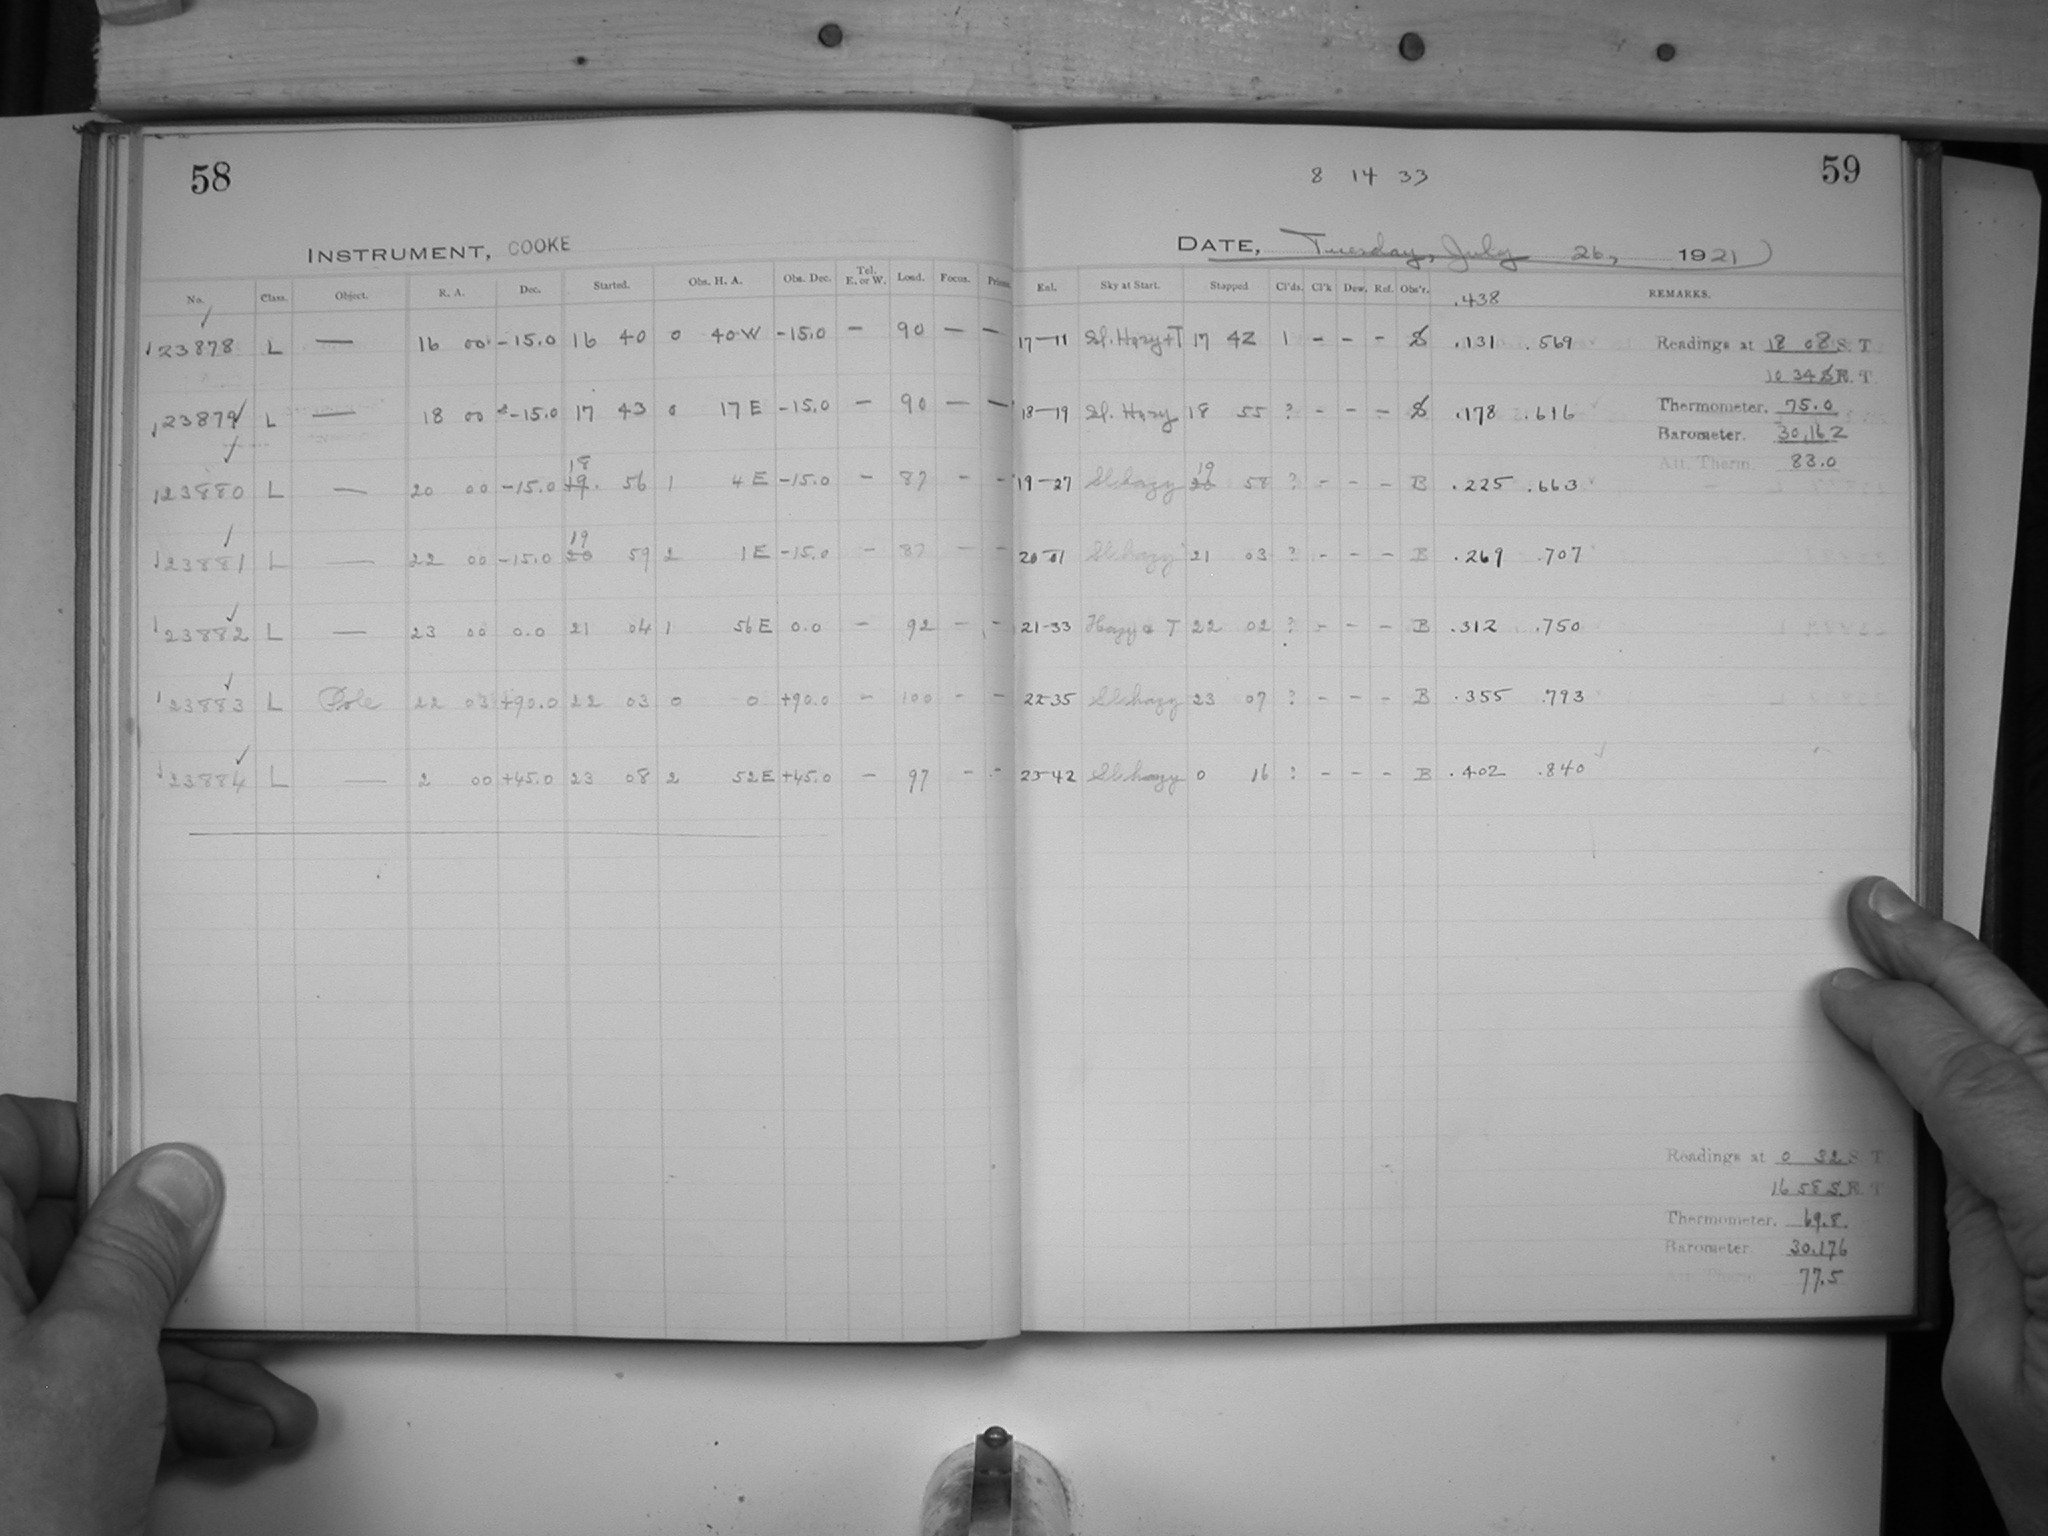 58
8 14 33
59
INSTRUMENT, COOKE
DATE, Tuesday, July 26, 1921
No. Class. Object. R. A. Dec. Started. Obs. H. A. Obs. Dec. Tel. E. or W. Load. Focus. Prisms. Enl. Sky at Start. Stopped Cl'ds. Cl'k Dew. Ref. Obs'r. .438 REMARKS.
23878 L — 16 00 -15.0 16 40 0 40 W -15.0 — 90 — — 17-11 Sl. Hazy+T 17 42 1 - - - S .131 .569 Readings at 18 08 S. T
10 34 S R. T.
23879 L — 18 00 -15.0 17 43 0 17 E -15.0 — 90 — — 18-19 Sl. Hazy 18 55 ? - - - S .178 .616 Thermometer. 75.0
Barometer. 30.162
Att. Therm. 83.0
23880 L — 20 00 -15.0 18 19 56 1 4 E -15.0 - 87 - - 19-27 Sl hazy 19 20 58 ? - - - B .225 .663
23881 L — 22 00 -15.0 19 20 59 2 1 E -15.0 - 87 - - 20-01 Sl hazy 21 03 ? - - - B .269 .707
23882 L — 23 00 0.0 21 04 1 56 E 0.0 - 92 - - 21-33 Hazy & T 22 02 ? - - - B .312 .750
23883 L Pole 22 03 +90.0 22 03 0 0 +90.0 - 100 - - 22-35 Sl hazy 23 07 ? - - - B .355 .793
23884 L — 2 00 +45.0 23 08 2 52 E +45.0 - 97 - - 23-42 Sl hazy 0 16 ? - - - B .402 .840
Readings at 0 32 S. T
16 58 S. R. T
Thermometer. 69.8.
Barometer 30.176
Att. Therm. 77.5